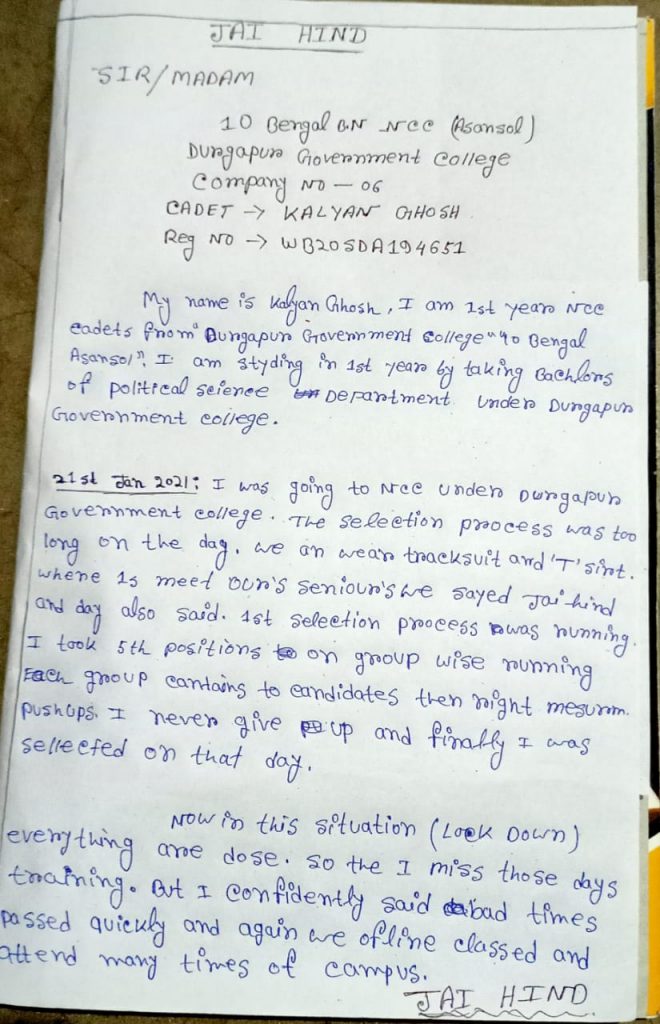 JAI HIND
SIR/MADAM
10 Bengal B.N NCC (Asansol)
Durgapur Government College
Company NO - 06
CADET → KALYAN GHOSH
Reg NO → WB20SDA194651
My name is Kalyan Ghosh, I am 1st year NCC
cadets from "Durgapur Government College" 10 Bengal
Asansol". I am styding in 1st year by taking Bachlors
of political science Department under Durgapur
Government college.
21st Jan 2021: I was going to NCC under Durgapur
Government college. The selection process was too
long on the day. we an wear tracksuit and 'T' sirt.
where is meet our's seniour's we sayed Jai-hind
and day also said. 1st selection process was running.
I took 5th positions on group wise running
Each group cantains to candidates then night mesurm.
pushups. I never give up and finally I was
sellected on that day.
NOW in this situation (Look Down)
everything are dose. so the I miss those days
training. But I confidently said bad times
passed quickly and again we ofline classed and
attend many times of campus.
JAI HIND